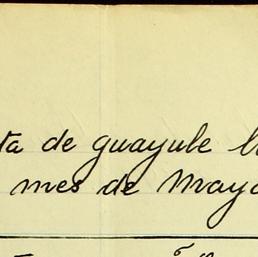 ta de guayule
mes de Mayo